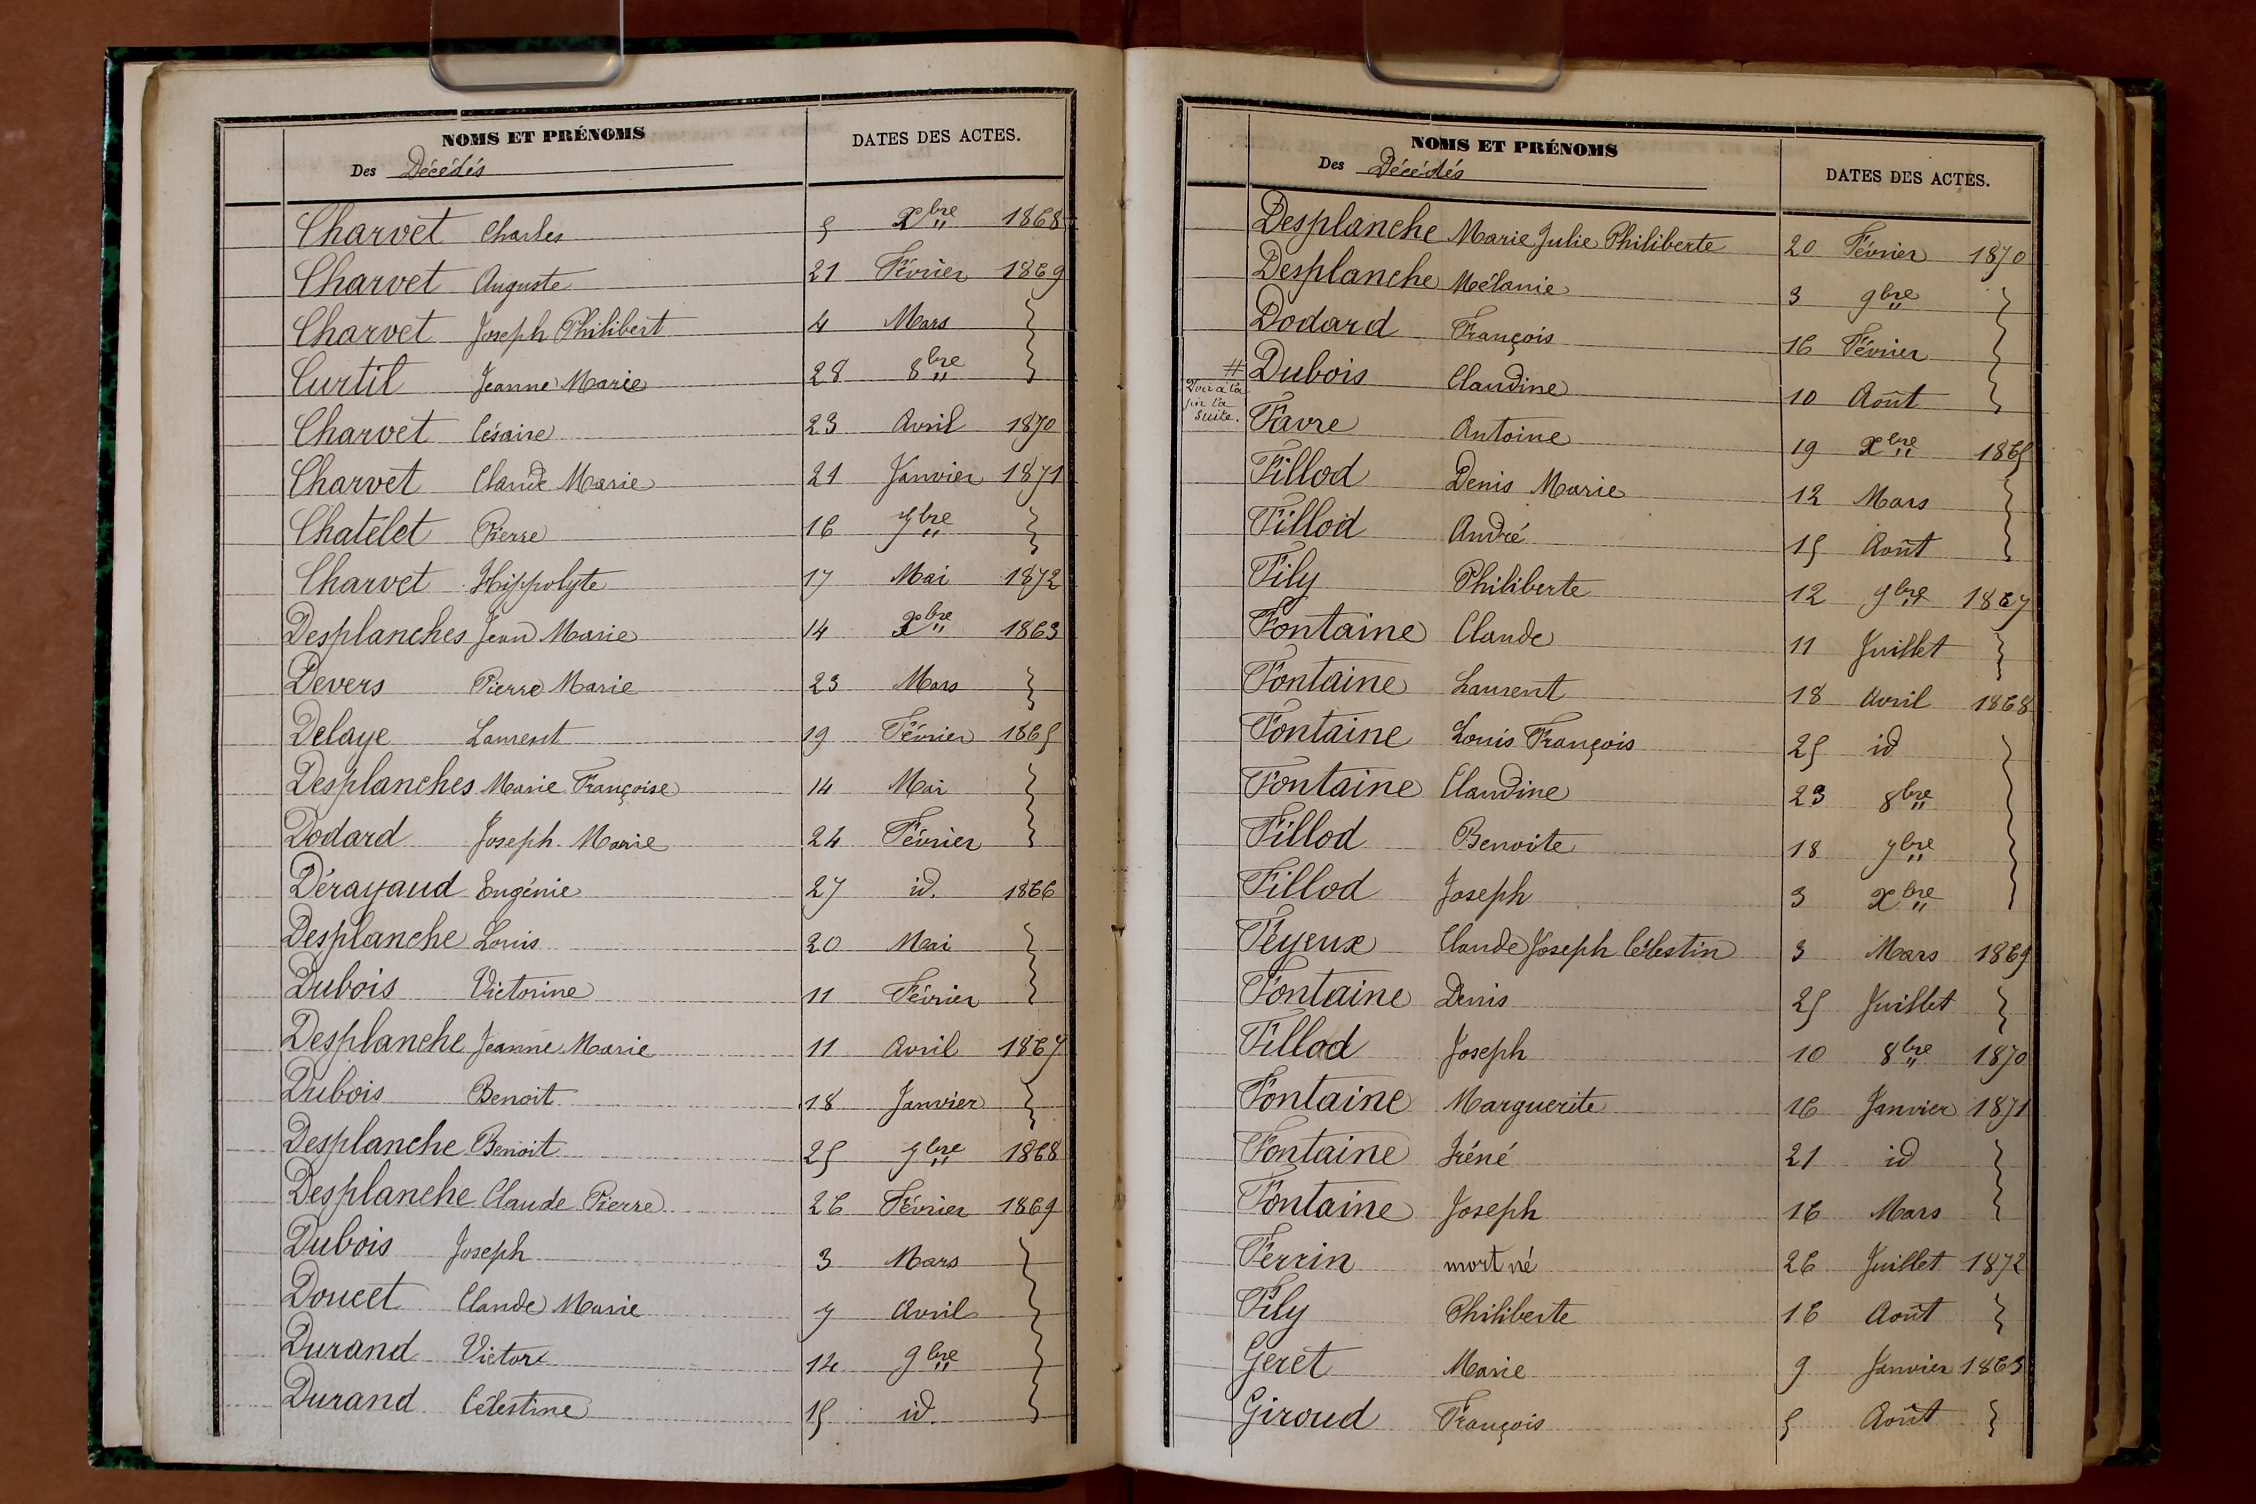 NOMS ET PRÉNOMS
Des Décédés
DATES DES ACTES.
Charvet Charles 5 Xbre 1868
Charvet Auguste 21 Février 1869
Charvet Joseph Philibert 4 Mars }
Curtil Jeanne Marie 28 8bre }
Charvet Césaire 23 Avril 1870
Charvet Claude Marie 21 Janvier 1871
Chatelet Pierre 16 7bre }
Charvet Hippolyte 17 Mai 1872
Desplanches Jean Marie 14 Xbre 1863
Devers Pierre Marie 23 Mars }
Delaye Laurent 19 Février 1865
Desplanches Marie Françoise 14 Mai }
Dodard Joseph Marie 24 Février }
Dérayaud Eugénie 27 id. 1866
Desplanche Louis 20 Mai }
Dubois Victorine 11 Février }
Desplanche Jeanne Marie 11 Avril 1867
Dubois Benoit 18 Janvier }
Desplanche Benoit 25 7bre 1868
Desplanche Claude Pierre 26 Février 1869
Dubois Joseph 3 Mars }
Doucet Claude Marie 7 Avril }
Durand Victor 14 9bre }
Durand Célestine 15 id. }
NOMS ET PRÉNOMS
Des Décédés
DATES DES ACTES.
Desplanche Marie Julie Philiberte 20 Février 1870
Desplanche Mélanie 3 9bre }
Dodard François 16 Février }
# Dubois Claudine 10 Août }
Voir à la
fin la
suite.
Favre Antoine 19 Xbre 1865
Fillod Denis Marie 12 Mars }
Fillod André 15 Août }
Fily Philiberte 12 9bre 1867
Fontaine Claude 11 Juillet }
Fontaine Laurent 18 Avril 1868
Fontaine Louis François 25 id }
Fontaine Claudine 23 8bre }
Fillod Benoite 18 7bre }
Fillod Joseph 3 Xbre }
Feyeux Claude Joseph Célestin 3 Mars 1869
Fontaine Denis 25 Juillet }
Fillod Joseph 10 8bre 1870
Fontaine Marguerite 16 Janvier 1871
Fontaine Iréné 21 id }
Fontaine Joseph 16 Mars }
Ferrin mort né 26 Juillet 1872
Fily Philiberte 16 Août }
Geret Marie 9 Janvier 1863
Giroud François 5 Août }